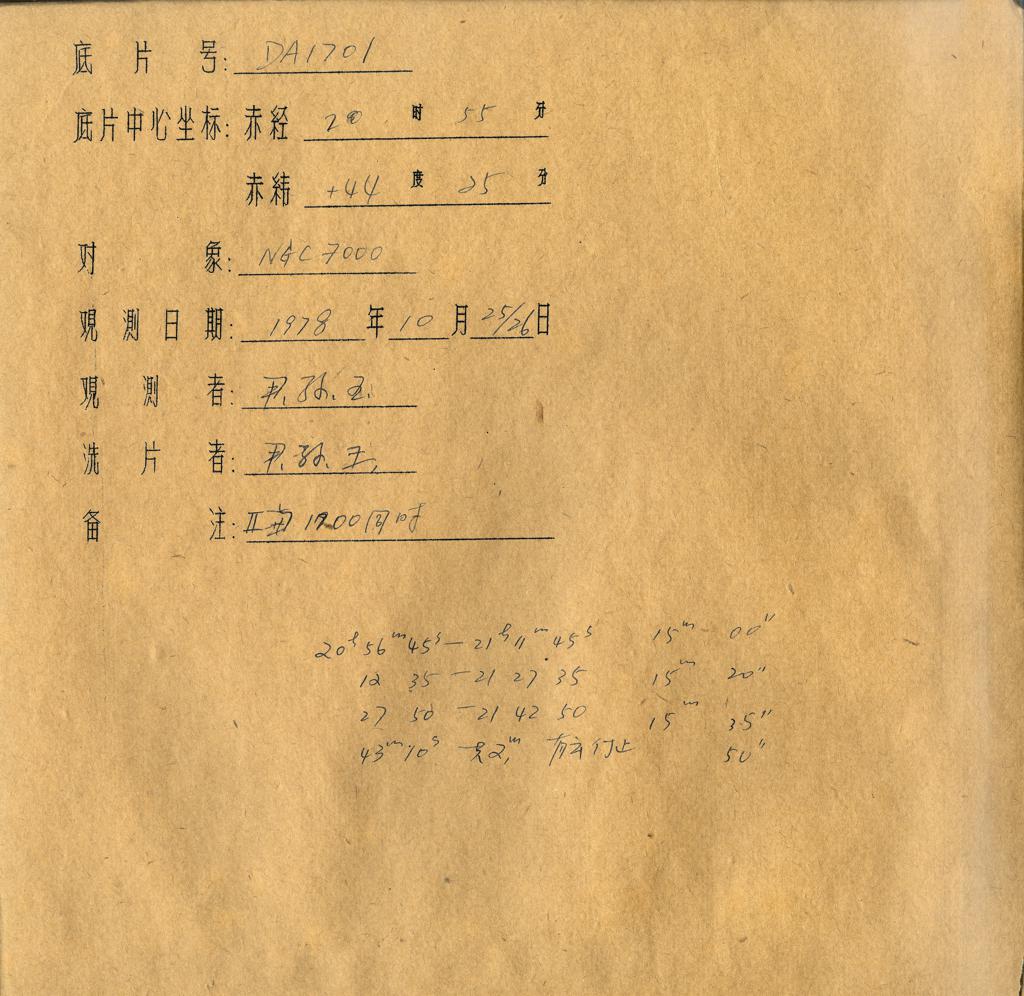 底片号: DA1701
底片中心坐标: 赤经 20 时 55 分
赤纬 +44 度 25 分
对象: NGC 7000
观测日期: 1978 年 10 月 25/26 日
观测者: 尹、孙、王
洗片者: 尹、孙、王
备注: II 1200 同时
20ʰ56ᵐ45ˢ—21ʰ11ᵐ45ˢ 15ᵐ 00"
12 35—21 27 35 15ᵐ 20"
27 50—21 42 50 15ᵐ 35"
43ᵐ10ˢ 共2ᵐ, 有云停止 50"